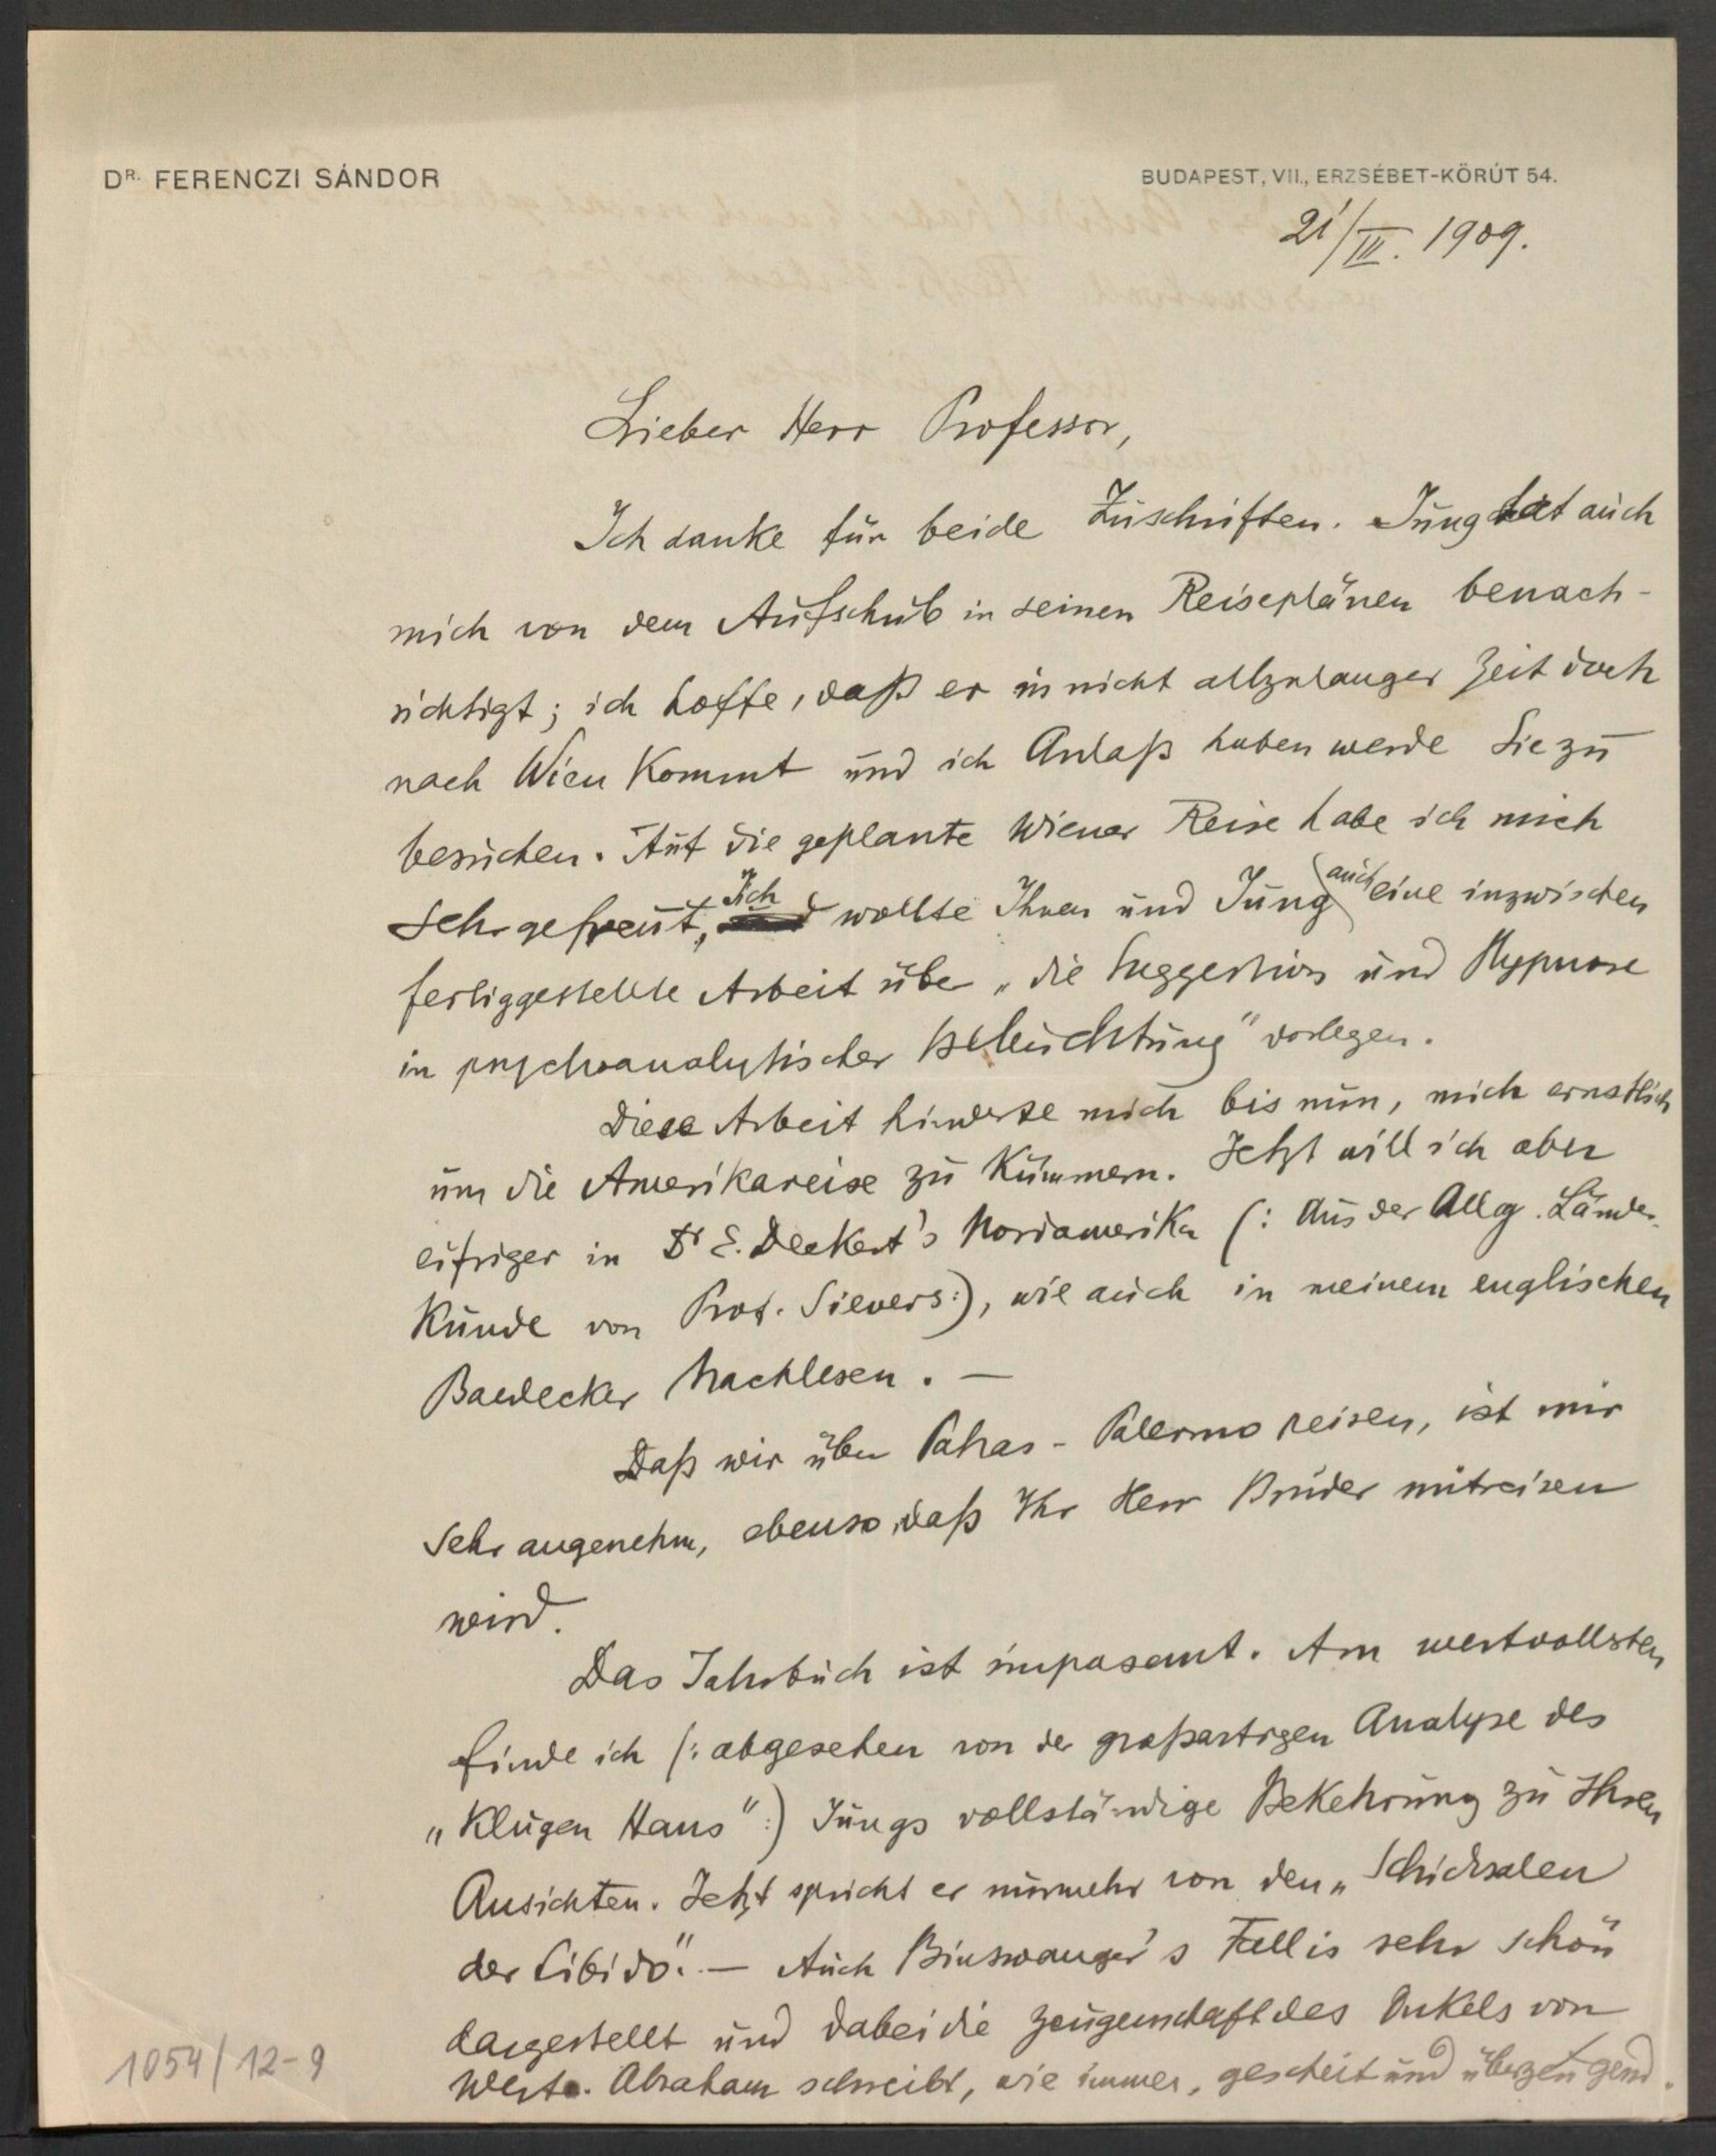 DR. FERENCZI SÁNDOR
BUDAPEST, VII., ERZSÉBET-KÖRÚT 54.
21/III. 1909.
Lieber Herr Professor,
Ich danke für beide Zuschriften. Jung hat auch
mich von dem Aufschub in seinen Reiseplänen benach-
richtigt; ich hoffe, daß er in nicht allzulanger Zeit doch
nach Wien kommt und ich Anlaß haben werde Sie zu
besuchen. Auf die geplante Wiener Reise habe ich mich
sehr gefreut, Ich wollte Ihnen und Jung auch eine inzwischen
fertiggestellte Arbeit über „die Suggestion und Hypnose
in psychoanalytischer Beleuchtung" vorlegen.
Diese Arbeit hinderte mich bis nun, mich ernstlich
um die Amerikareise zu kümmern. Jetzt will ich aber
eifriger in Dr E. Deckert's Nordamerika (: Aus der Allg. Länder-
kunde von Prof. Sievers:), wie auch in meinem englischen
Baedecker nachlesen. —
Daß wir über Patras - Palermo reisen, ist mir
sehr angenehm, ebenso, daß Ihr Herr Bruder mitreisen
wird.
Das Jahrbuch ist imposant. Am wertvollsten
finde ich (: abgesehen von der großartigen Analyse des
„Klugen Hans":) Jungs vollständige Bekehrung zu Ihren
Ansichten. Jetzt spricht er nurmehr von den „Schicksalen
der Libido". — Auch Binswanger's Fall is sehr schön
dargestellt und dabei die Zeugenschaft des Onkels von
Wert. Abraham schreibt, wie immer, gescheit und überzeugend.
1054/12-9